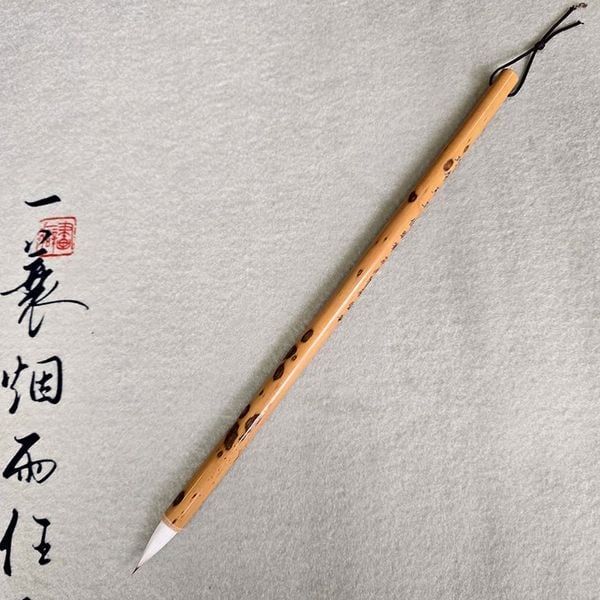 一蓑烟雨任